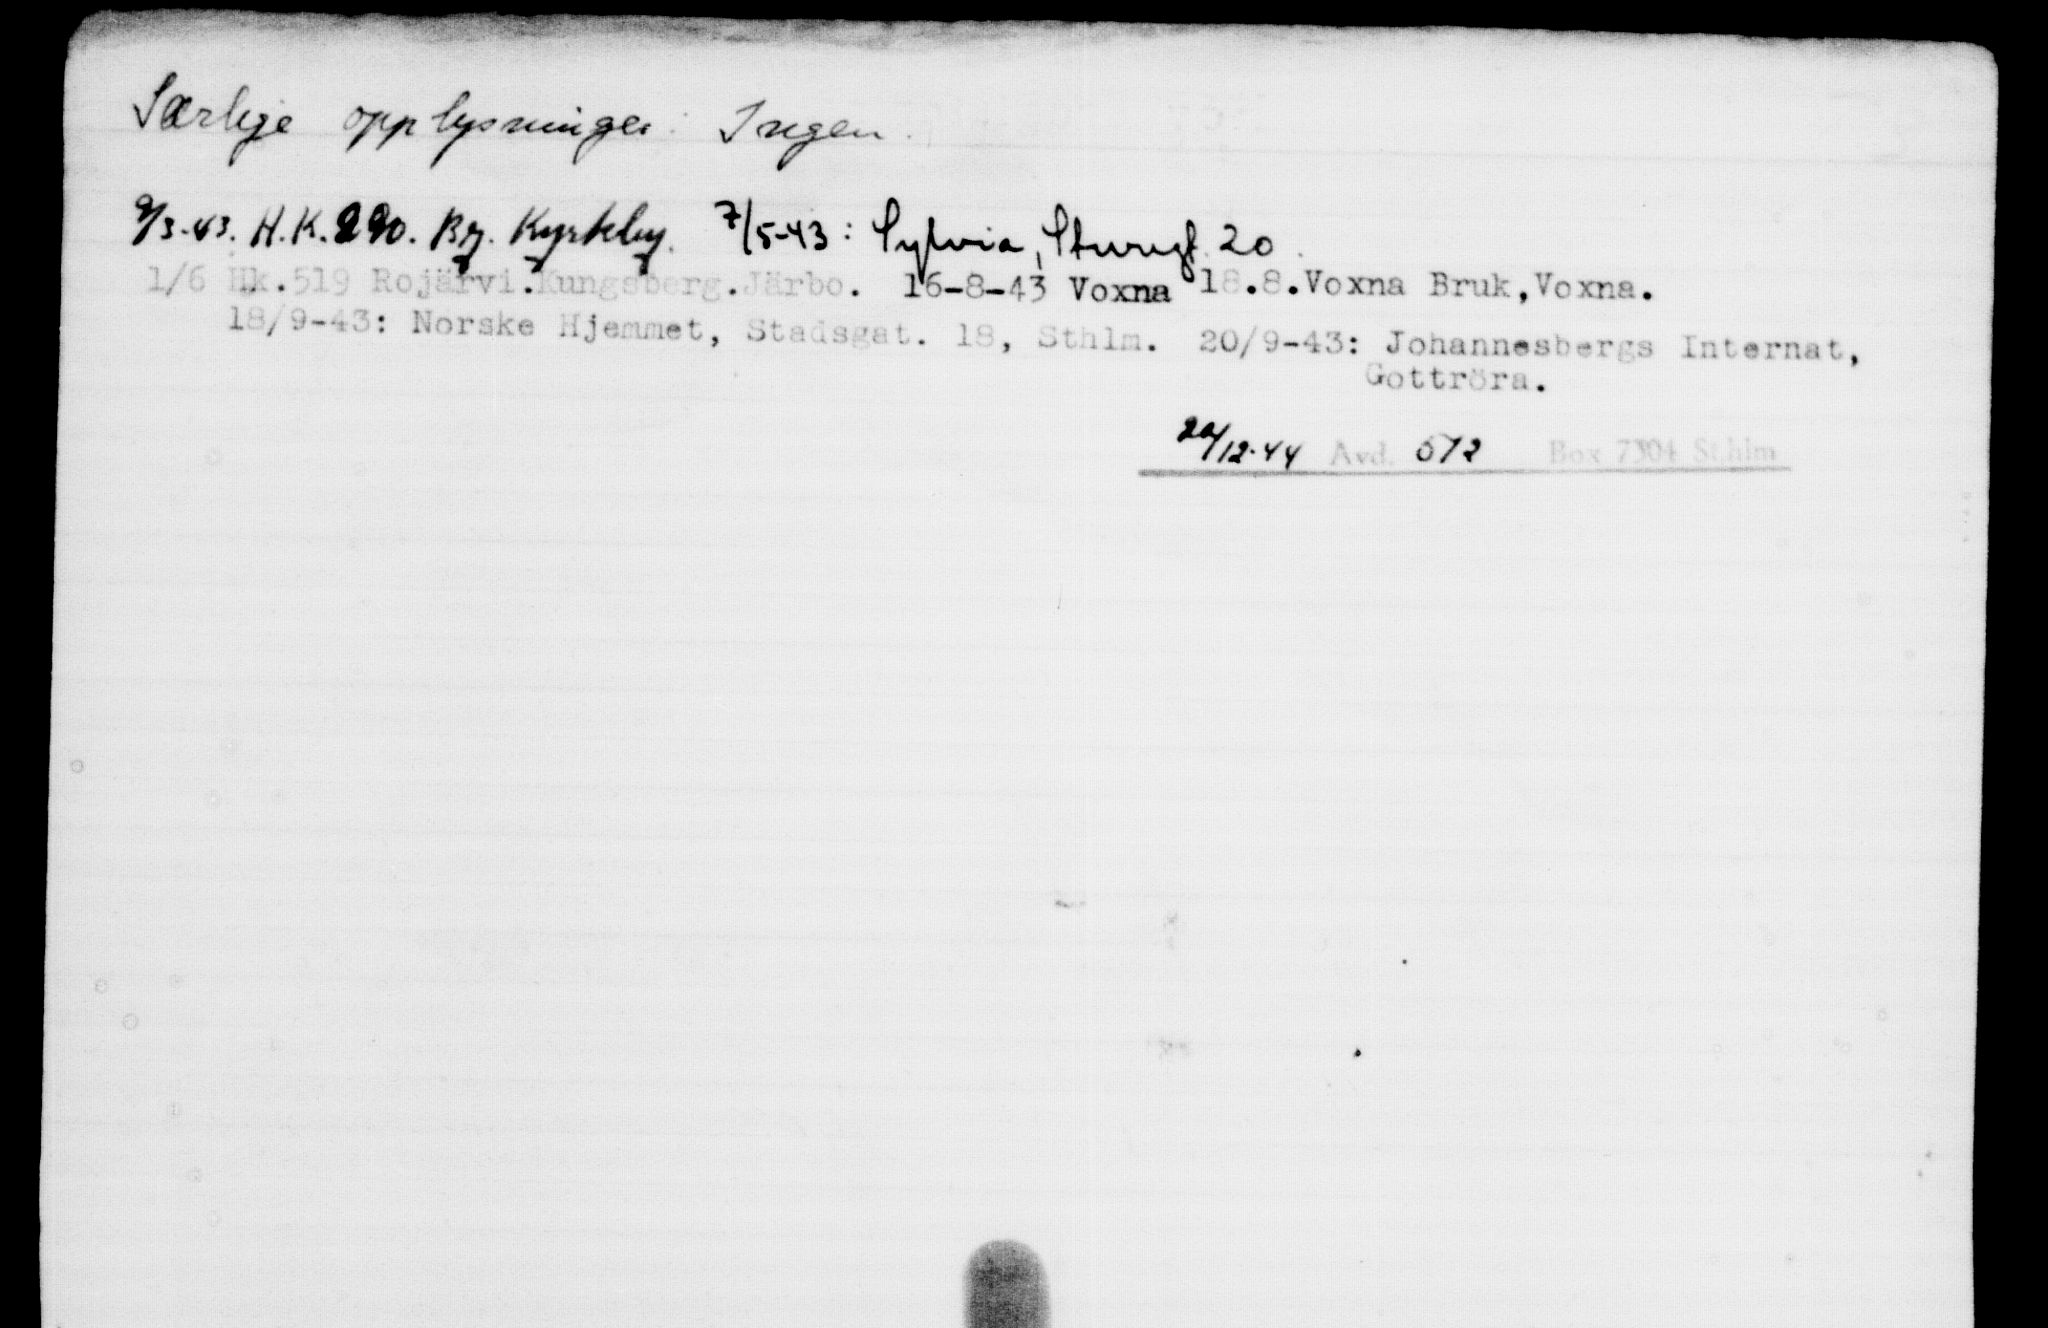 Særlige opplysninger: Ingen.
9/3-43. H.K. 290. By. Kyrkeby. 7/5-43: Sylvia, Sturegt. 20.
1/6 Hk.519 Rojärvi.Kungsberg.Järbo. 16-8-43 Voxna 18.8.Voxna Bruk,Voxna.
18/9-43: Norske Hjemmet, Stadsgat. 18, Sthlm. 20/9-43: Johannesbergs Internat,
Gottröra.
20/12-44 Avd. 572 Box 7304 Sthlm